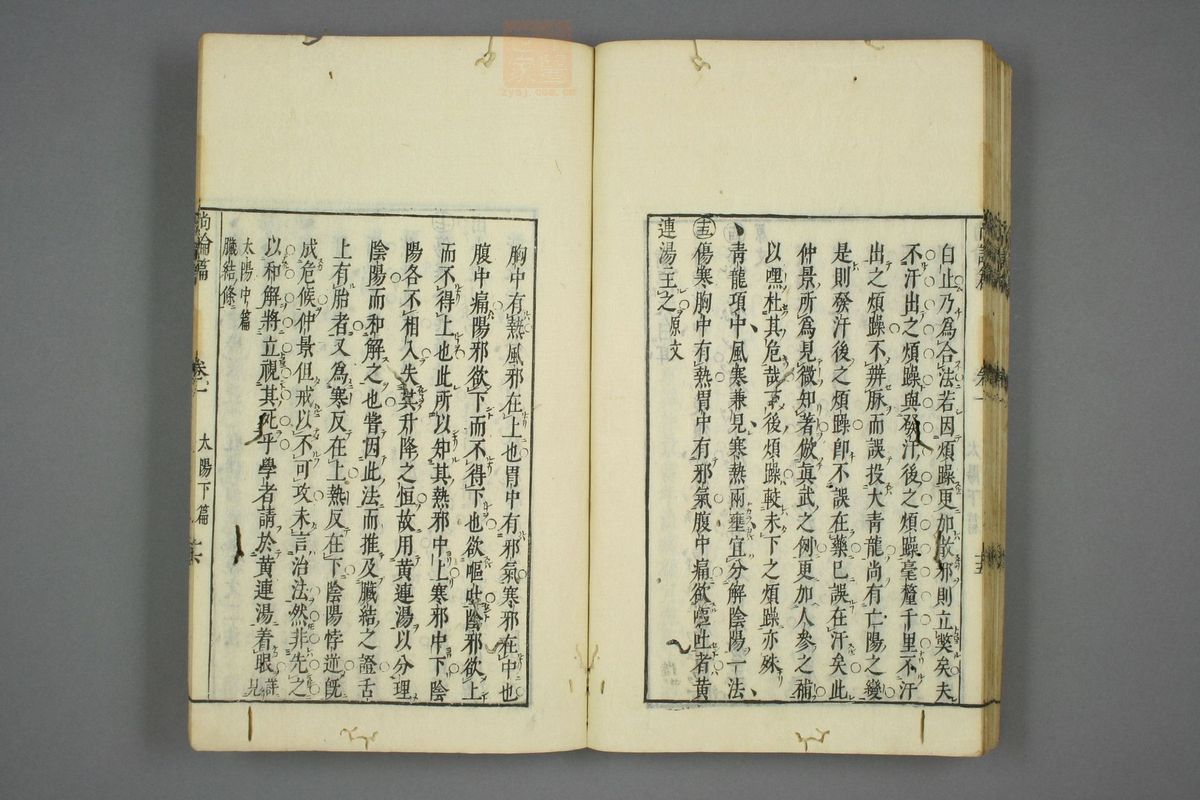 白止乃為合法若因煩躁更加散邪則立斃矣夫
不汗出之煩躁與發汗後之煩躁毫釐千里不汗
出之煩躁不辨脉而誤投大青龍尚有亡陽之變
是則發汗後之煩躁卽不誤在藥已誤在汗矣此
仲景所為見微知著倣眞武之例更加人參之補
以嘿杜其危哉下後煩躁較未下之煩躁亦殊
青龍項中風寒兼見寒熱兩壅宜分解陰陽一法
傷寒胸中有熱胃中有邪氣腹中痛欲嘔吐者黃
連湯主之原文
胸中有熱風邪在上也胃中有邪氣寒邪在中也
腹中痛陽邪欲下而不得下也欲嘔吐陰邪欲上
而不得上也此所以知其熱邪中上寒邪中下陰
陽各不相入失其升降之恒故用黃連湯以分理
陰陽而和解之也嘗因此法而推及臟結之證舌
上有胎者又為寒反在上熱反在下陰陽悖逆旣
成危候仲景但戒以不可攻未言治法然非先之
以和解將立視其死乎學者請於黃連湯着眼詳見
太陽中篇
臟結條
尚論篇 卷一 太陽下篇
zysj.com.cn